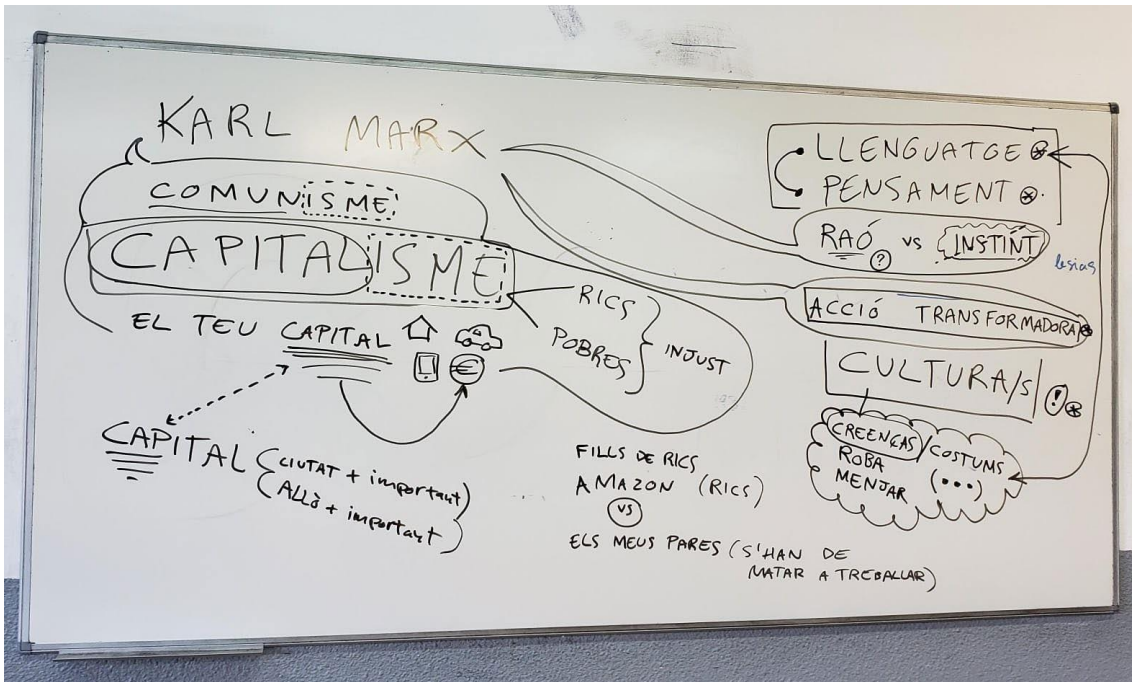 KARL MARX
COMUNISME
CAPITALISME
EL TEU CAPITAL
€
RICS
POBRES
INJUST
CAPITAL
(CIUTAT + important)
(ALLÒ + important)
FILLS DE RICS
AMAZON (RICS)
VS
ELS MEUS PARES (S'HAN DE
MATAR A TREBALLAR)
LLENGUATGE
PENSAMENT
RAÓ vs INSTÍNT
?
ACCIÓ TRANSFORMADORA
CULTURA/S
!
CREENÇAS/COSTUMS
ROBA
MENJAR (...)